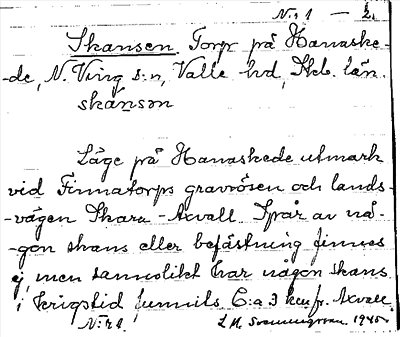 N:r 1 – 2.
Skansen. Torp på Hanaske-
-de, N. Ving s:n, Valle hd, Skb. län.
skánsən
Läge på Hanaskede utmark
vid Finnatorps gravrösen och lands-
-vägen Skara - Axvall. Spår av nå-
-gon skans eller befästning finnes
ej, men sannolikt har någon skans
i krigstid funnits. C:a 3 km fr. Axvall.
N:r 1. 1945